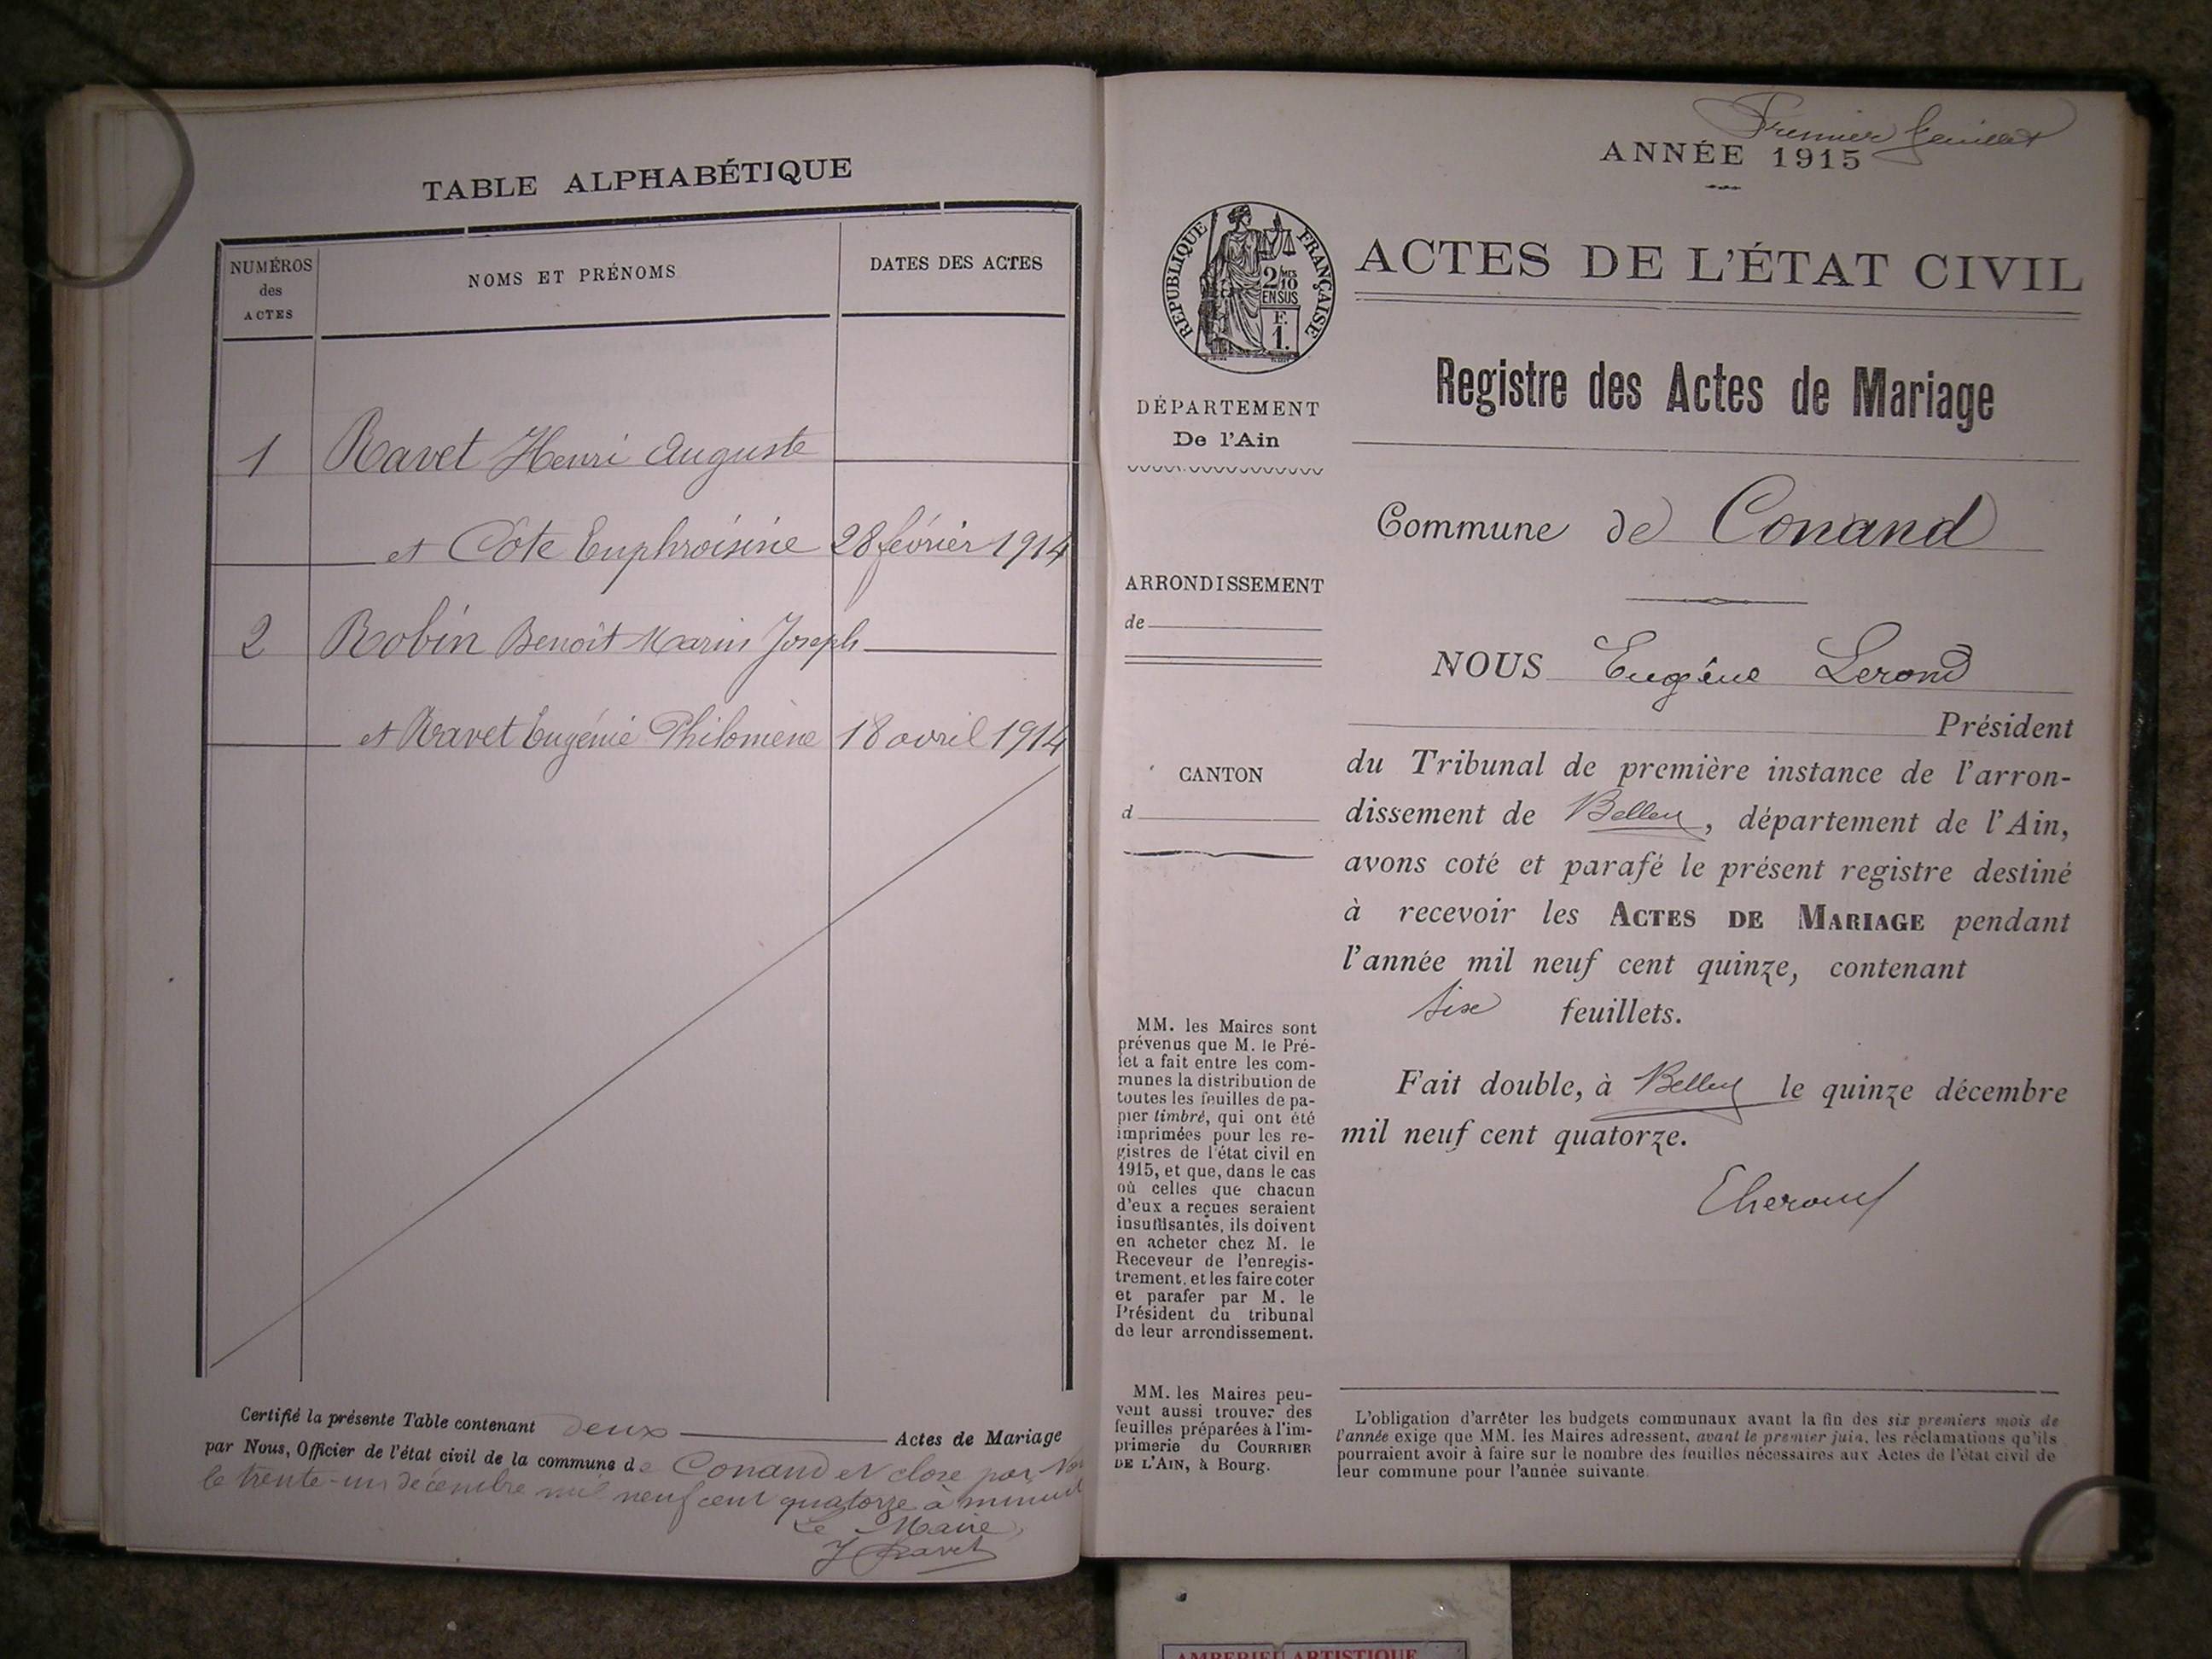 TABLE ALPHABÉTIQUE
NUMÉROS
des
ACTES
NOMS ET PRÉNOMS
DATES DES ACTES
1 Ravet Henri Auguste
et Cote Euphroisine 28 février 1914
2 Robin Benoit Marin Joseph
et Ravet Eugénie Philomène 18 avril 1914
Certifié la présente Table contenant deux Actes de Mariage
par Nous, Officier de l'état civil de la commune de Conand et close par
le trente-un décembre mil neuf cent quatorze à minuit
Le Maire,
J Ravet
Premier feuillet
ANNÉE 1915
RÉPUBLIQUE FRANÇAISE
2/10
EN SUS
F.
1.
ACTES DE L'ÉTAT CIVIL
Registre des Actes de Mariage
DÉPARTEMENT
De l'Ain
Commune de Conand
ARRONDISSEMENT
de
CANTON
d
NOUS Eugène Lerond
Président
du Tribunal de première instance de l'arron-
dissement de Belley, département de l'Ain,
avons coté et parafé le présent registre destiné
à recevoir les ACTES DE MARIAGE pendant
l'année mil neuf cent quinze, contenant
six feuillets.
Fait double, à Belley le quinze décembre
mil neuf cent quatorze.
MM. les Maires sont
prévenus que M. le Pré-
fet a fait entre les com-
munes la distribution de
toutes les feuilles de pa-
pier timbré, qui ont été
imprimées pour les re-
gistres de l'état civil en
1915, et que, dans le cas
où celles que chacun
d'eux a reçues seraient
insuffisantes, ils doivent
en acheter chez M. le
Receveur de l'enregis-
trement, et les faire coter
et parafer par M. le
Président du tribunal
de leur arrondissement.
MM. les Maires peu-
vent aussi trouver des
feuilles préparées à l'im-
primerie du COURRIER
DE L'AIN, à Bourg.
L'obligation d'arrêter les budgets communaux avant la fin des six premiers mois de
l'année exige que MM. les Maires adressent, avant le premier juin, les réclamations qu'ils
pourraient avoir à faire sur le nombre des feuilles nécessaires aux Actes de l'état civil de
leur commune pour l'année suivante.
AMBERIEU ARTISTIQUE